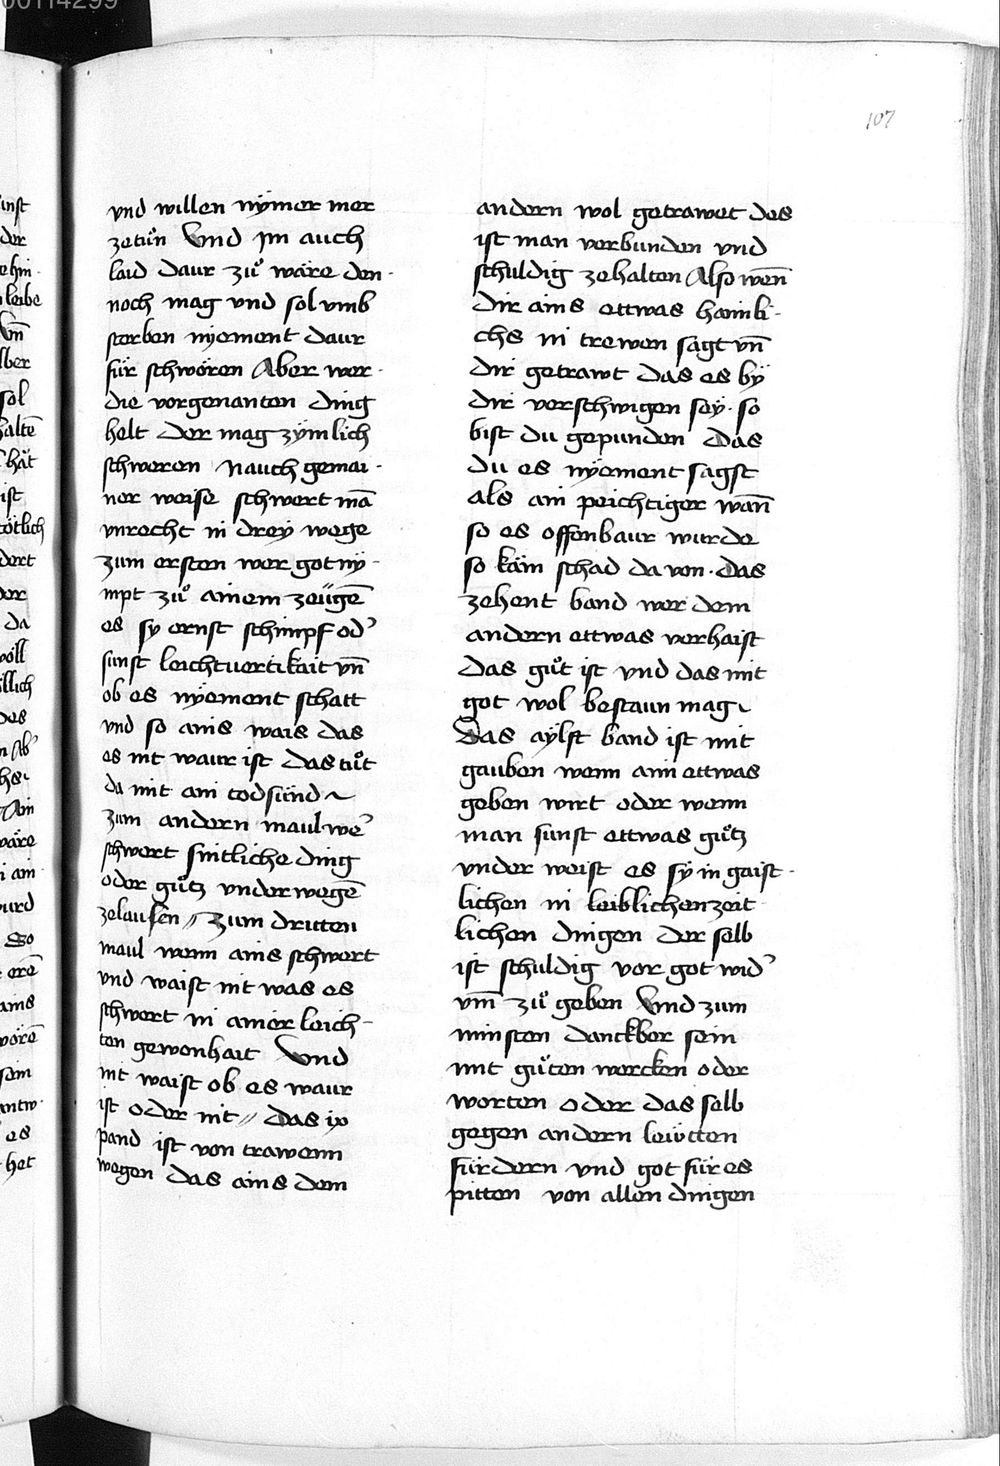 00114299
107
vnd willen nÿmer mer
zetůn Vnd jm auch
laid daur zů wäre den-
noch mag vnd sol vmb
sterben nyement daur
für schwören Aber wer-
die vorgenanten ding
helt der mag zymlich
schweren Nauch gemai-
ner weise schwert mā
vnrecht in dreÿ wege
zum ersten wer got nÿ-
mpt zů ainem zeügē
es sy ernst schimpf od'
sunst leichtuertikait vn̄
ob es nÿement schatt
vnd so ains wais das
es nit waur ist das tůt
da mit ain todsünd
zum andern maul we'
schwert sintliche ding
oder gůtz vnderwegē
zelausen // Zum dritten
maul wenn ains schwert
vnd waist nit was es
schwert in ainer leich-
ten gewonhait Vnd
nit waist ob es waur
ist oder nit // Das ix
pand ist von trawenn
wegen das ains dem
andern wol getrawet des
ist man verbunden vnd
schuldig zehalten Also wen̄
dir ains ettwas haimli-
chs in trewen sagt vn̄
dir getrawt das es bÿ
dir verschwigen seÿ · so
bist du gepunden Das
du es nÿement sagst
als ain peichtiger wan̄
so es offenbaur wurde
so käm schad da von · Das
zehent band wer dem
andern ettwas verhaist
das gůt ist vnd das mit
got wol bestaun mag
Das aÿlft band ist mit
gauben wenn aim ettwas
geben wirt oder wenn
man sunst ettwas gůtz
vnder weist es sÿ in gaist-
lichen in leiblichen zeit
lichen dingen der selb
ist schuldig vor got wid'
vm̄ zů geben Vnd zum
minsten danckber sein
mit gůten wercken oder
worten oder das selb
gegen andern leẅtten
fürdern vnd got für es
pitten von allen dingen